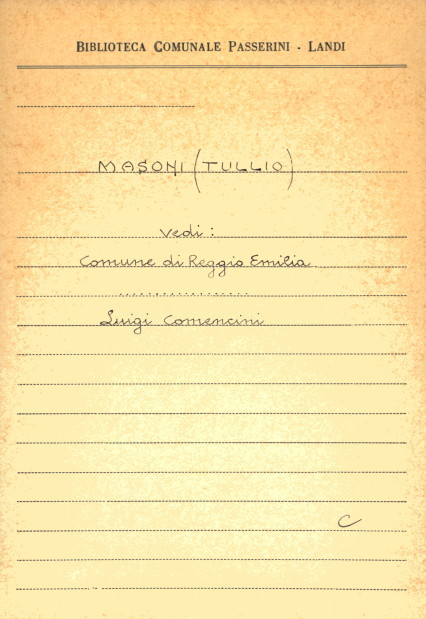 BIBLIOTECA COMUNALE PASSERINI - LANDI
MASONI (TULLIO)
vedi:
Comune di Reggio Emilia
..................
Luigi Comencini
C